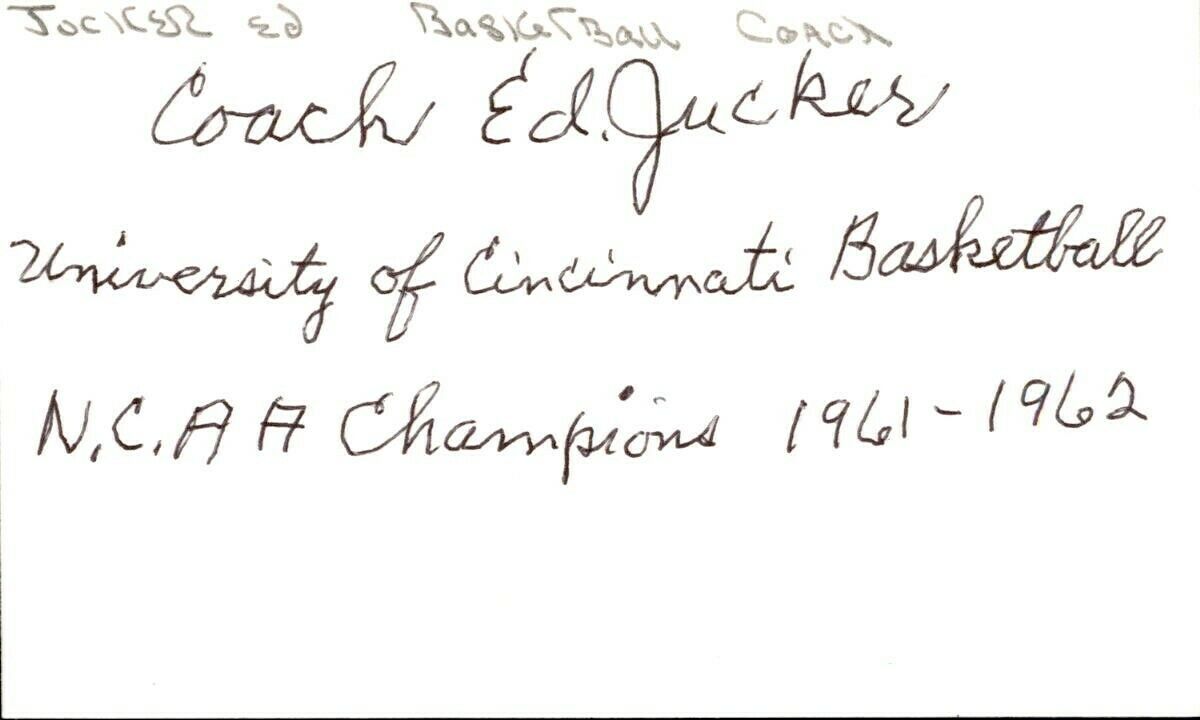 JUCKER Ed BasketBall Coach
Coach Ed. Jucker
University of Cincinnati Basketball
N.C.A A Champions 1961-1962